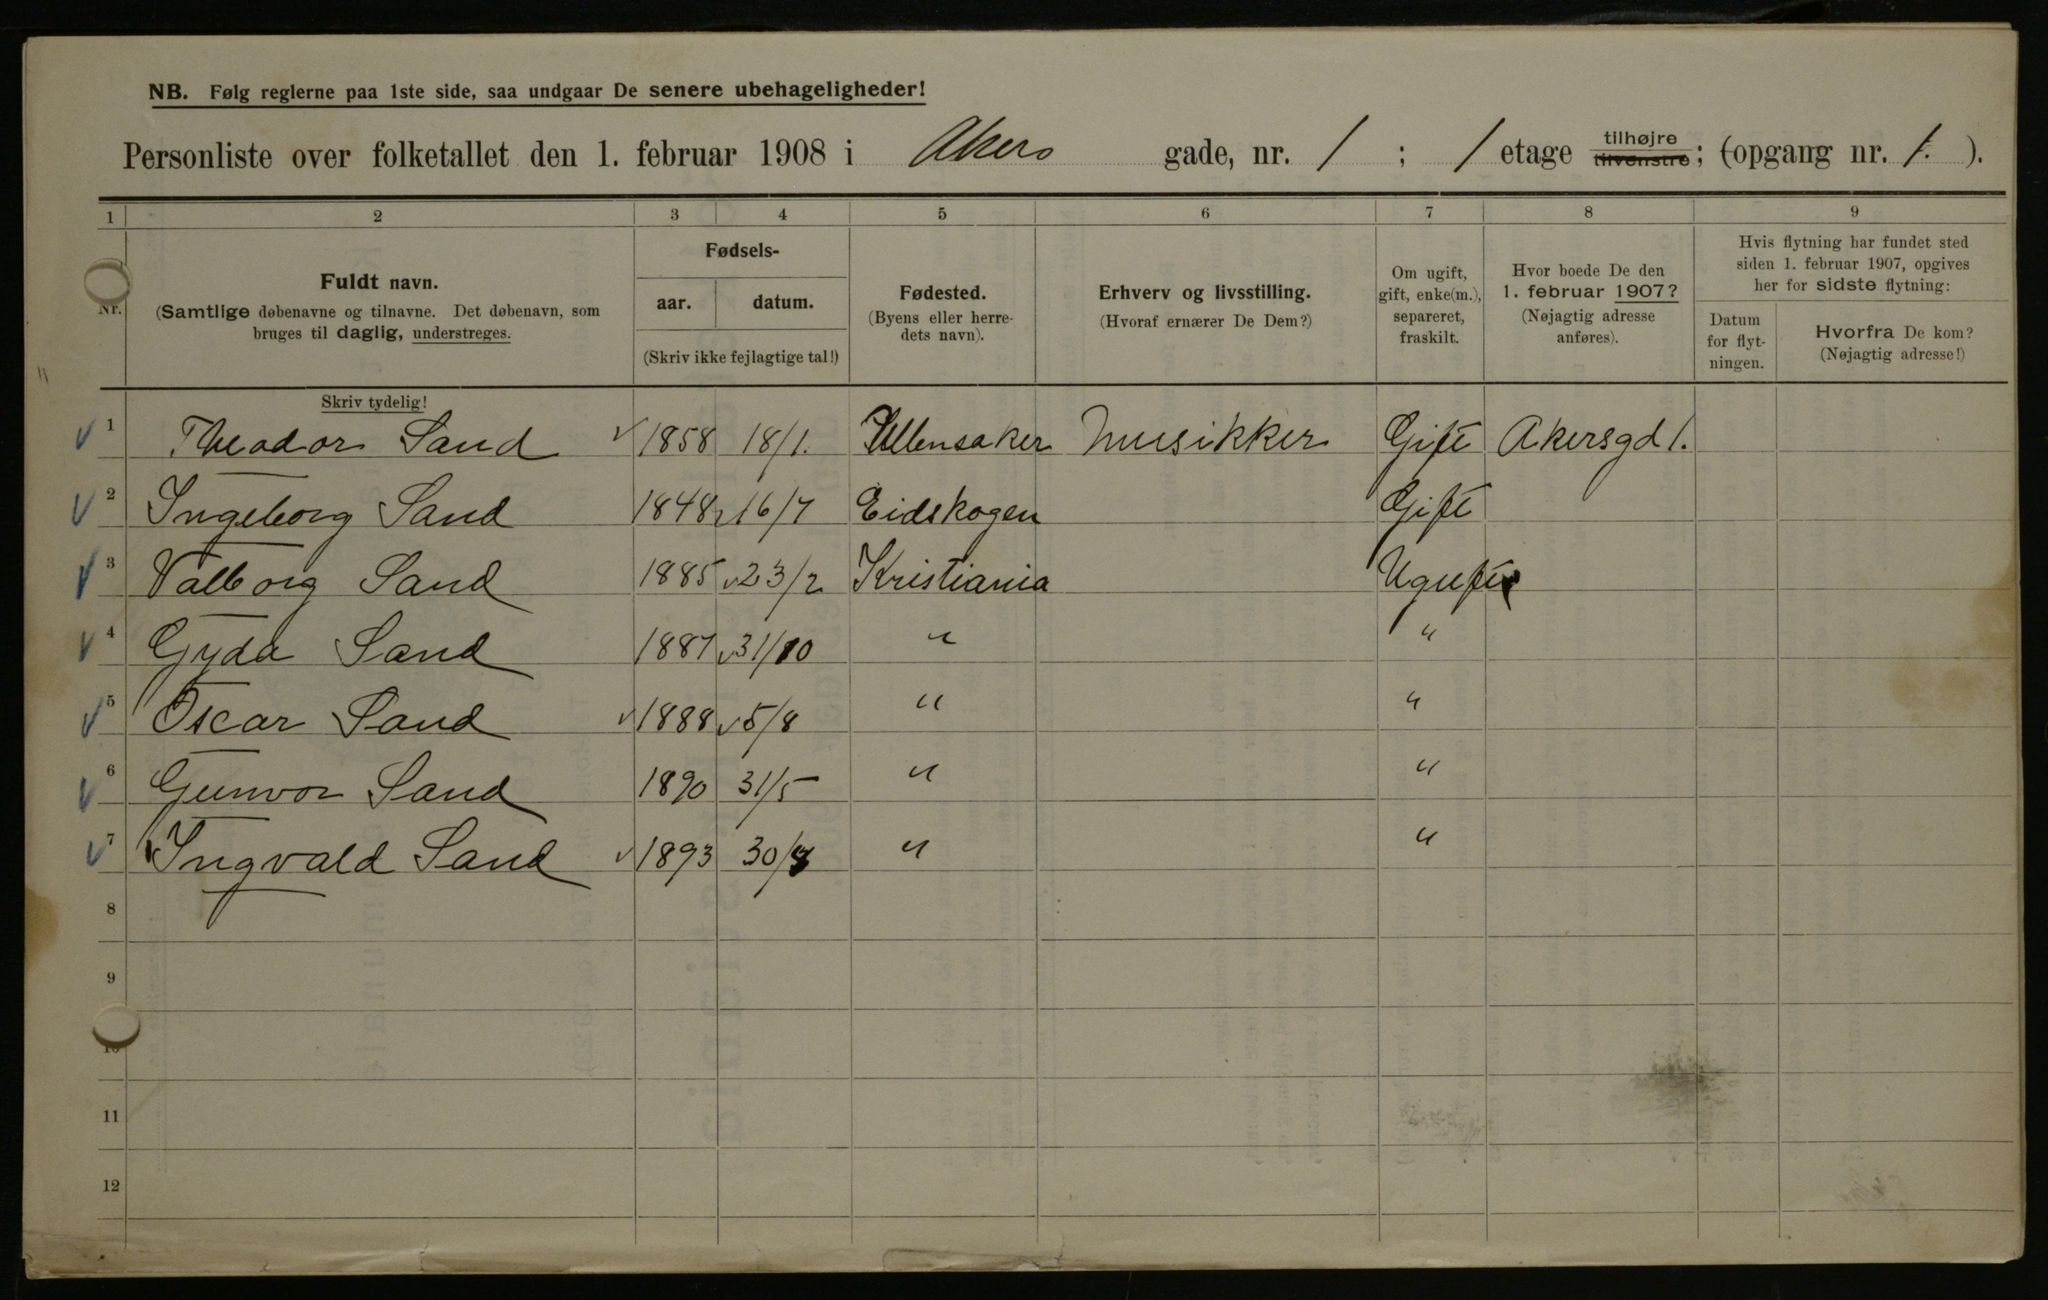 NB. Følg reglerne paa 1ste side, saa undgaar De senere ubehageligheder!
Personliste over folketallet den 1. februar 1908 i Akers gade, nr. 1 ; 1 etage tilhøjre tilvenstre; (opgang nr. 1. ).
1 2 3 4 5 6 7 8 9
Nr.
Fuldt navn.
(Samtlige døbenavne og tilnavne. Det døbenavn, som
bruges til daglig, understreges.
Skriv tydelig!
Fødsels-
aar. datum.
(Skriv ikke fejlagtige tal!)
Fødested.
(Byens eller herre-
dets navn).
Erhverv og livsstilling.
(Hvoraf ernærer De Dem?)
Om ugift,
gift, enke(m.),
separeret,
fraskilt.
Hvor boede De den
1. februar 1907?
(Nøjagtig adresse
anføres).
Hvis flytning har fundet sted
siden 1. februar 1907, opgives
her for sidste flytning:
Datum
for flyt-
ningen.
Hvorfra De kom?
(Nøjagtig adresse!)
1 Theodor Sand 1858 18/1. Ullensaker Musikker Gift Akersgd 1.
2 Ingeborg Sand 1848 16/7 Eidskogen Gift
3 Valborg Sand 1885 23/2 Kristiania Ugift
4 Gyda Sand 1887 31/10 " "
5 Oscar Sand 1888 5/8 " "
6 Gunvor Sand 1890 31/5 " "
7 Ingvald Sand 1893 " "
8
9
10
11
12